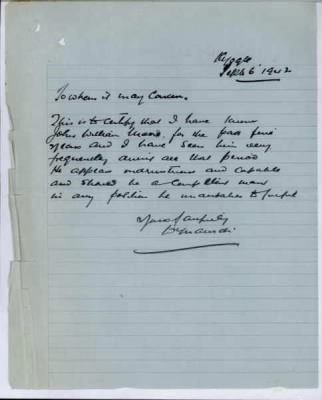 Kyogle
Sept 6 1942
To whom it may Concern.
This is to certify that I have known
John William for the past five
years and I have seen him very
frequently during all that period
He appears industrious and capable
and should be a competent man
in any position he undertakes to fulfil
Yours faithfully